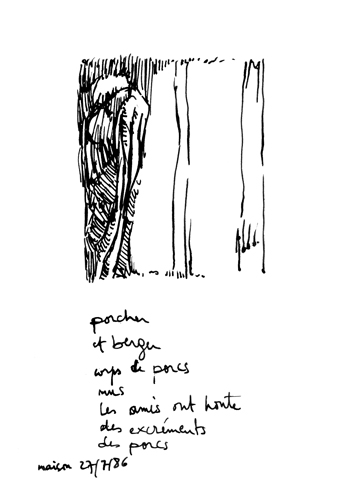 porcher
et berger
corps de porcs
nus
les amis ont honte
des excréments
des porcs
maison 27/7/86